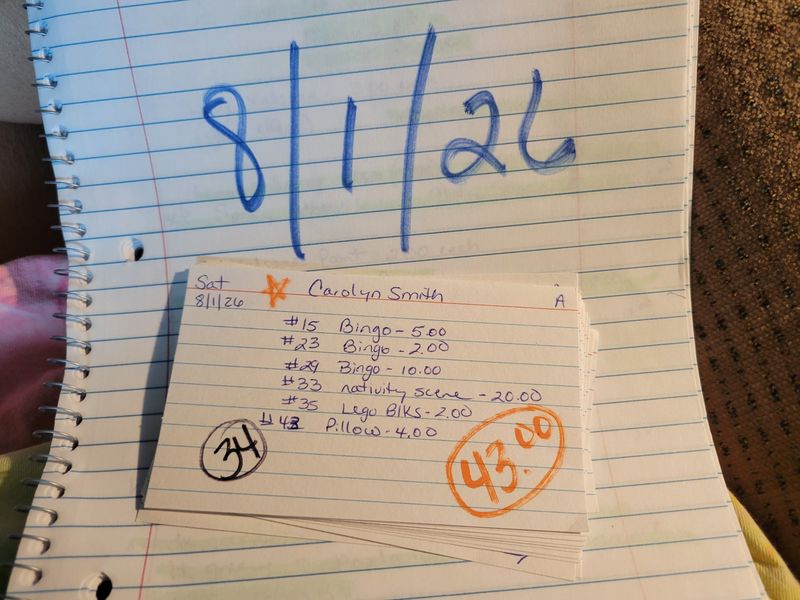 8/1/26
Sat
Carolyn Smith
A
8/1/26
#15 Bingo - 5.00
#23 Bingo - 2.00
#29 Bingo - 10.00
#33 nativity scene - 20.00
#35 Lego Blks - 2.00
#43 Pillow - 4.00
34
43.00